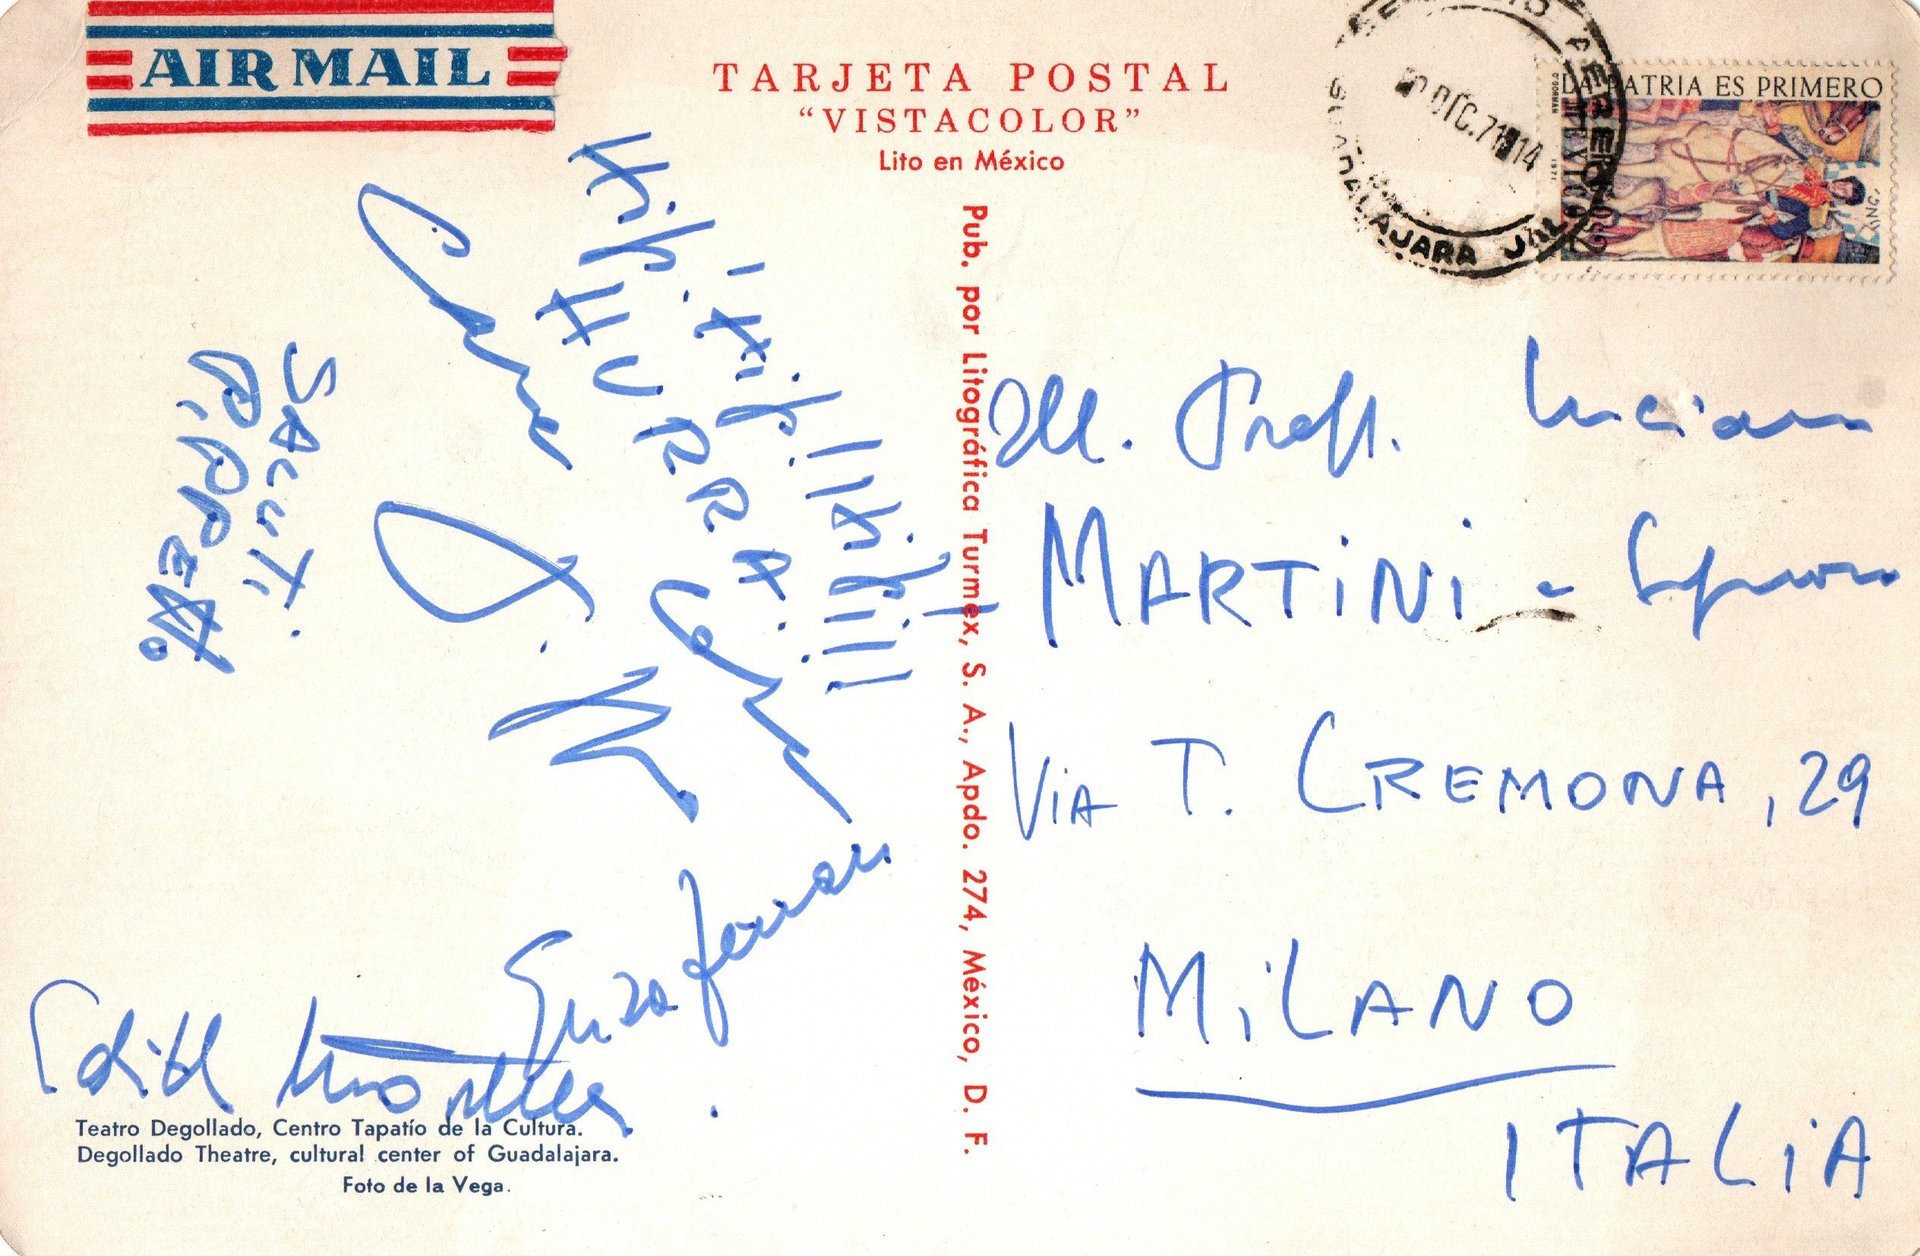 AIR MAIL
TARJETA POSTAL
"VISTACOLOR"
Lito en México
AEREO
GUADALAJARA JAL
DIC. 71
14
LA PATRIA ES PRIMERO
MEXICO
1971
Pub. por Litográfica Turmex, S. A., Apdo. 274, México, D. F.
Hip, Hip, Hip, Hip
HURRA
SALUTI
Ill. Prof. Luciano
MARTINI e Signora
VIA T. CREMONA, 29
MILANO
ITALIA
Edith
Enza Ferrari
Teatro Degollado, Centro Tapatío de la Cultura.
Degollado Theatre, cultural center of Guadalajara.
Foto de la Vega.